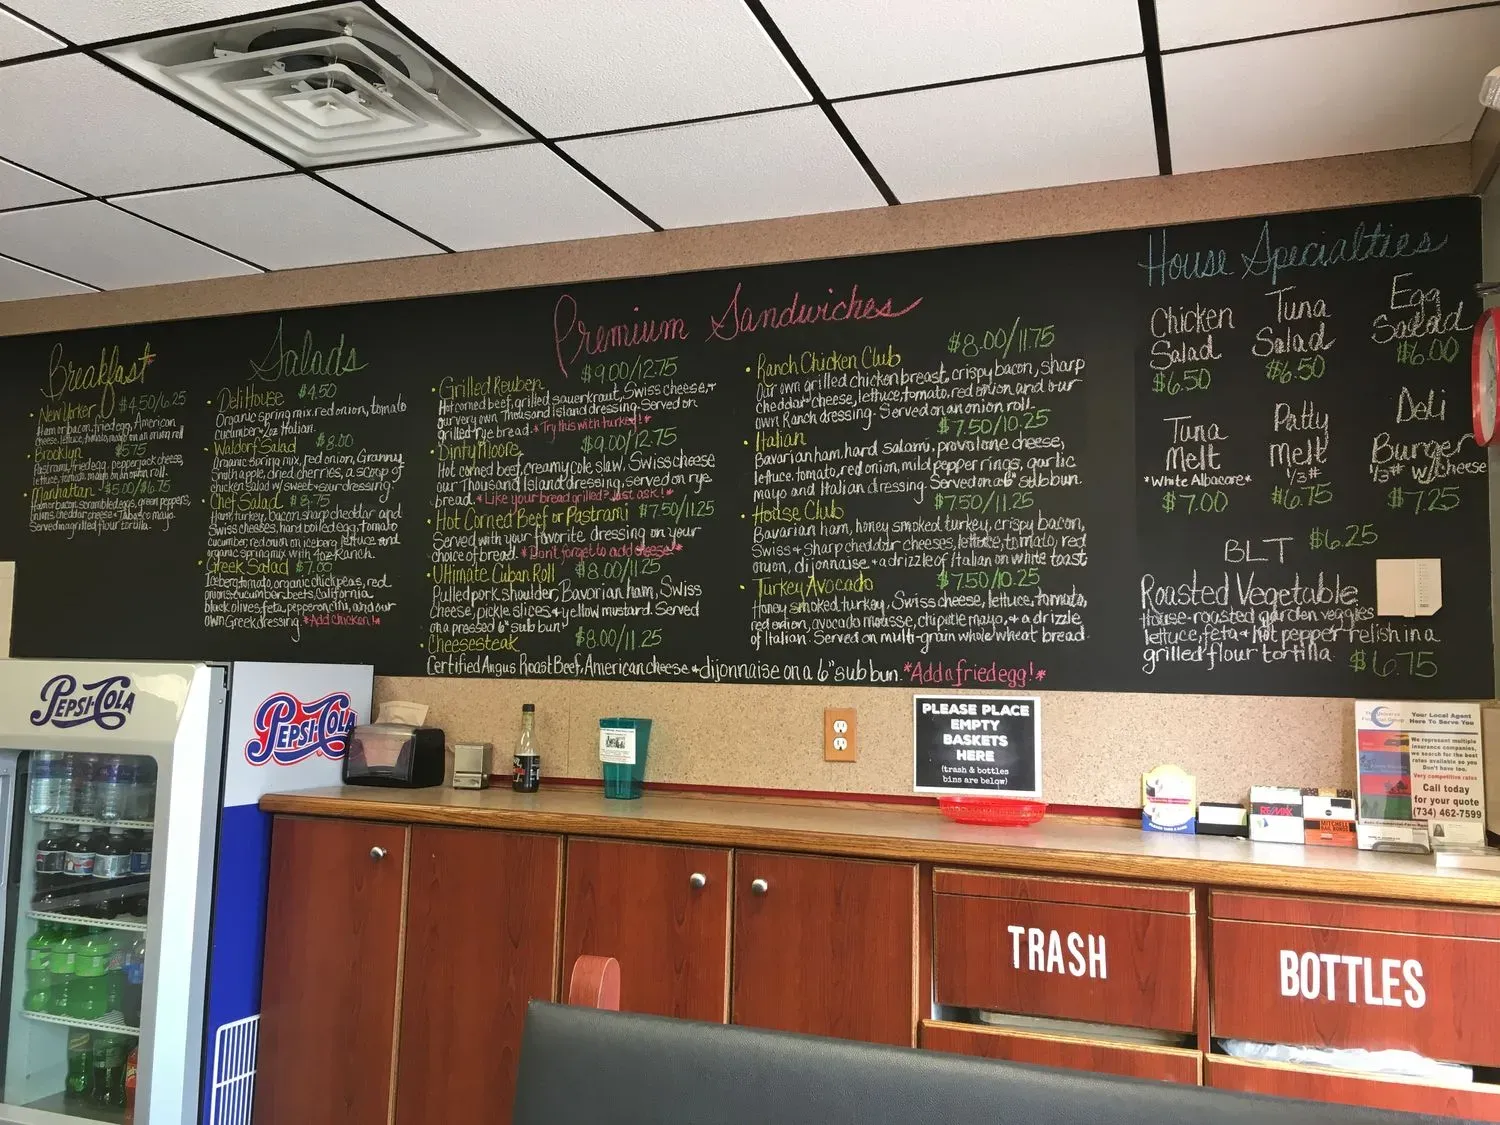 Breakfast*
• New Yorker $4.50/6.25
Ham or bacon, fried egg, American
cheese, lettuce, tomato, mayo on an onion roll
• Brooklyn $5.75
Pastrami, fried egg, pepperjack cheese,
lettuce, tomato mayo on an onion roll.
• Manhattan - $5.00/$6.75
Ham or bacon, scrambled eggs, green peppers,
onions, cheddar cheese + Tabasco mayo.
Served in a grilled flour tortilla.
Salads
• Deli House $4.50
Organic spring mix, red onion, tomato
cucumber + 2oz Italian.
• Waldorf Salad $8.00
Organic spring mix, red onion, Granny
Smith apple, dried cherries, a scoop of
chicken salad w/ sweet + sour dressing.
• Chef Salad $8.75
Ham, turkey, bacon, sharp cheddar and
Swiss cheeses, hard boiled egg, tomato
cucumber, red onion on iceberg lettuce and
organic spring mix with 4oz Ranch.
• Greek Salad $7.00
Iceberg, tomato, organic chick peas, red
onions, cucumber, beets, California
black olives, feta, pepperoncini, and our
own Greek dressing. *Add chicken!*
Premium Sandwiches
• Grilled Reuben $9.00/12.75
Hot corned beef, grilled sauerkraut, Swiss cheese, +
our very own Thousand Island dressing. Served on
grilled rye bread. *Try this with turkey!*
• Dinty Moore $9.00/12.75
Hot corned beef, creamy cole slaw, Swiss cheese
our Thousand Island dressing, served on rye
bread. *Like your bread grilled? Just ask!*
• Hot Corned Beef or Pastrami $7.50/11.25
Served with your favorite dressing on your
choice of bread. *Don't forget to add cheese*
• Ultimate Cuban Roll $8.00/11.25
Pulled pork shoulder, Bavarian ham, Swiss
cheese, pickle slices + yellow mustard. Served
on a pressed 6" sub bun
• Cheesesteak $8.00/11.25
Certified Angus Roast Beef, American cheese + dijonnaise on a 6" sub bun. *Add a fried egg!*
• Ranch Chicken Club $8.00/11.75
Our own grilled chicken breast, crispy bacon, sharp
cheddar cheese, lettuce, tomato, red onion and our
own Ranch dressing. Served on an onion roll.
• Italian $7.50/10.25
Bavarian ham, hard salami, provalone cheese,
lettuce, tomato, red onion, mild pepper rings, garlic
mayo and Italian dressing. Served on a 6" sub bun.
• House Club $7.50/11.25
Bavarian ham, honey smoked turkey, crispy bacon,
Swiss + sharp cheddar cheeses, lettuce, tomato, red
onion, dijonnaise + a drizzle of Italian on white toast
• Turkey Avocado $7.50/10.25
Honey smoked turkey, Swiss cheese, lettuce, tomato,
red onion, avocado mousse, chipotle mayo, + a drizzle
of Italian. Served on multi-grain whole wheat bread.
House Specialties
Chicken
Salad
$6.50
Tuna
Salad
$6.50
Egg
Salad
$6.00
Tuna
Melt
*White Albacore*
$7.00
Patty
Melt
1/3#
$6.75
Deli
Burger
1/3# w/cheese
$7.25
BLT $6.25
Roasted Vegetable
House-roasted garden veggies
lettuce, feta + hot pepper relish in a
grilled flour tortilla. $6.75
PEPSI-COLA
PEPSI-COLA
PLEASE PLACE
EMPTY
BASKETS
HERE
(trash & bottles
bins are below)
TRASH
BOTTLES
RE/MAX
MITCHELL
Your Local Agent
Here To Serve You
We represent multiple
insurance companies,
we search for the best
rates available so you
Don't have too.
Very competitive rates
Call today
for your quote
(734) 462-7599